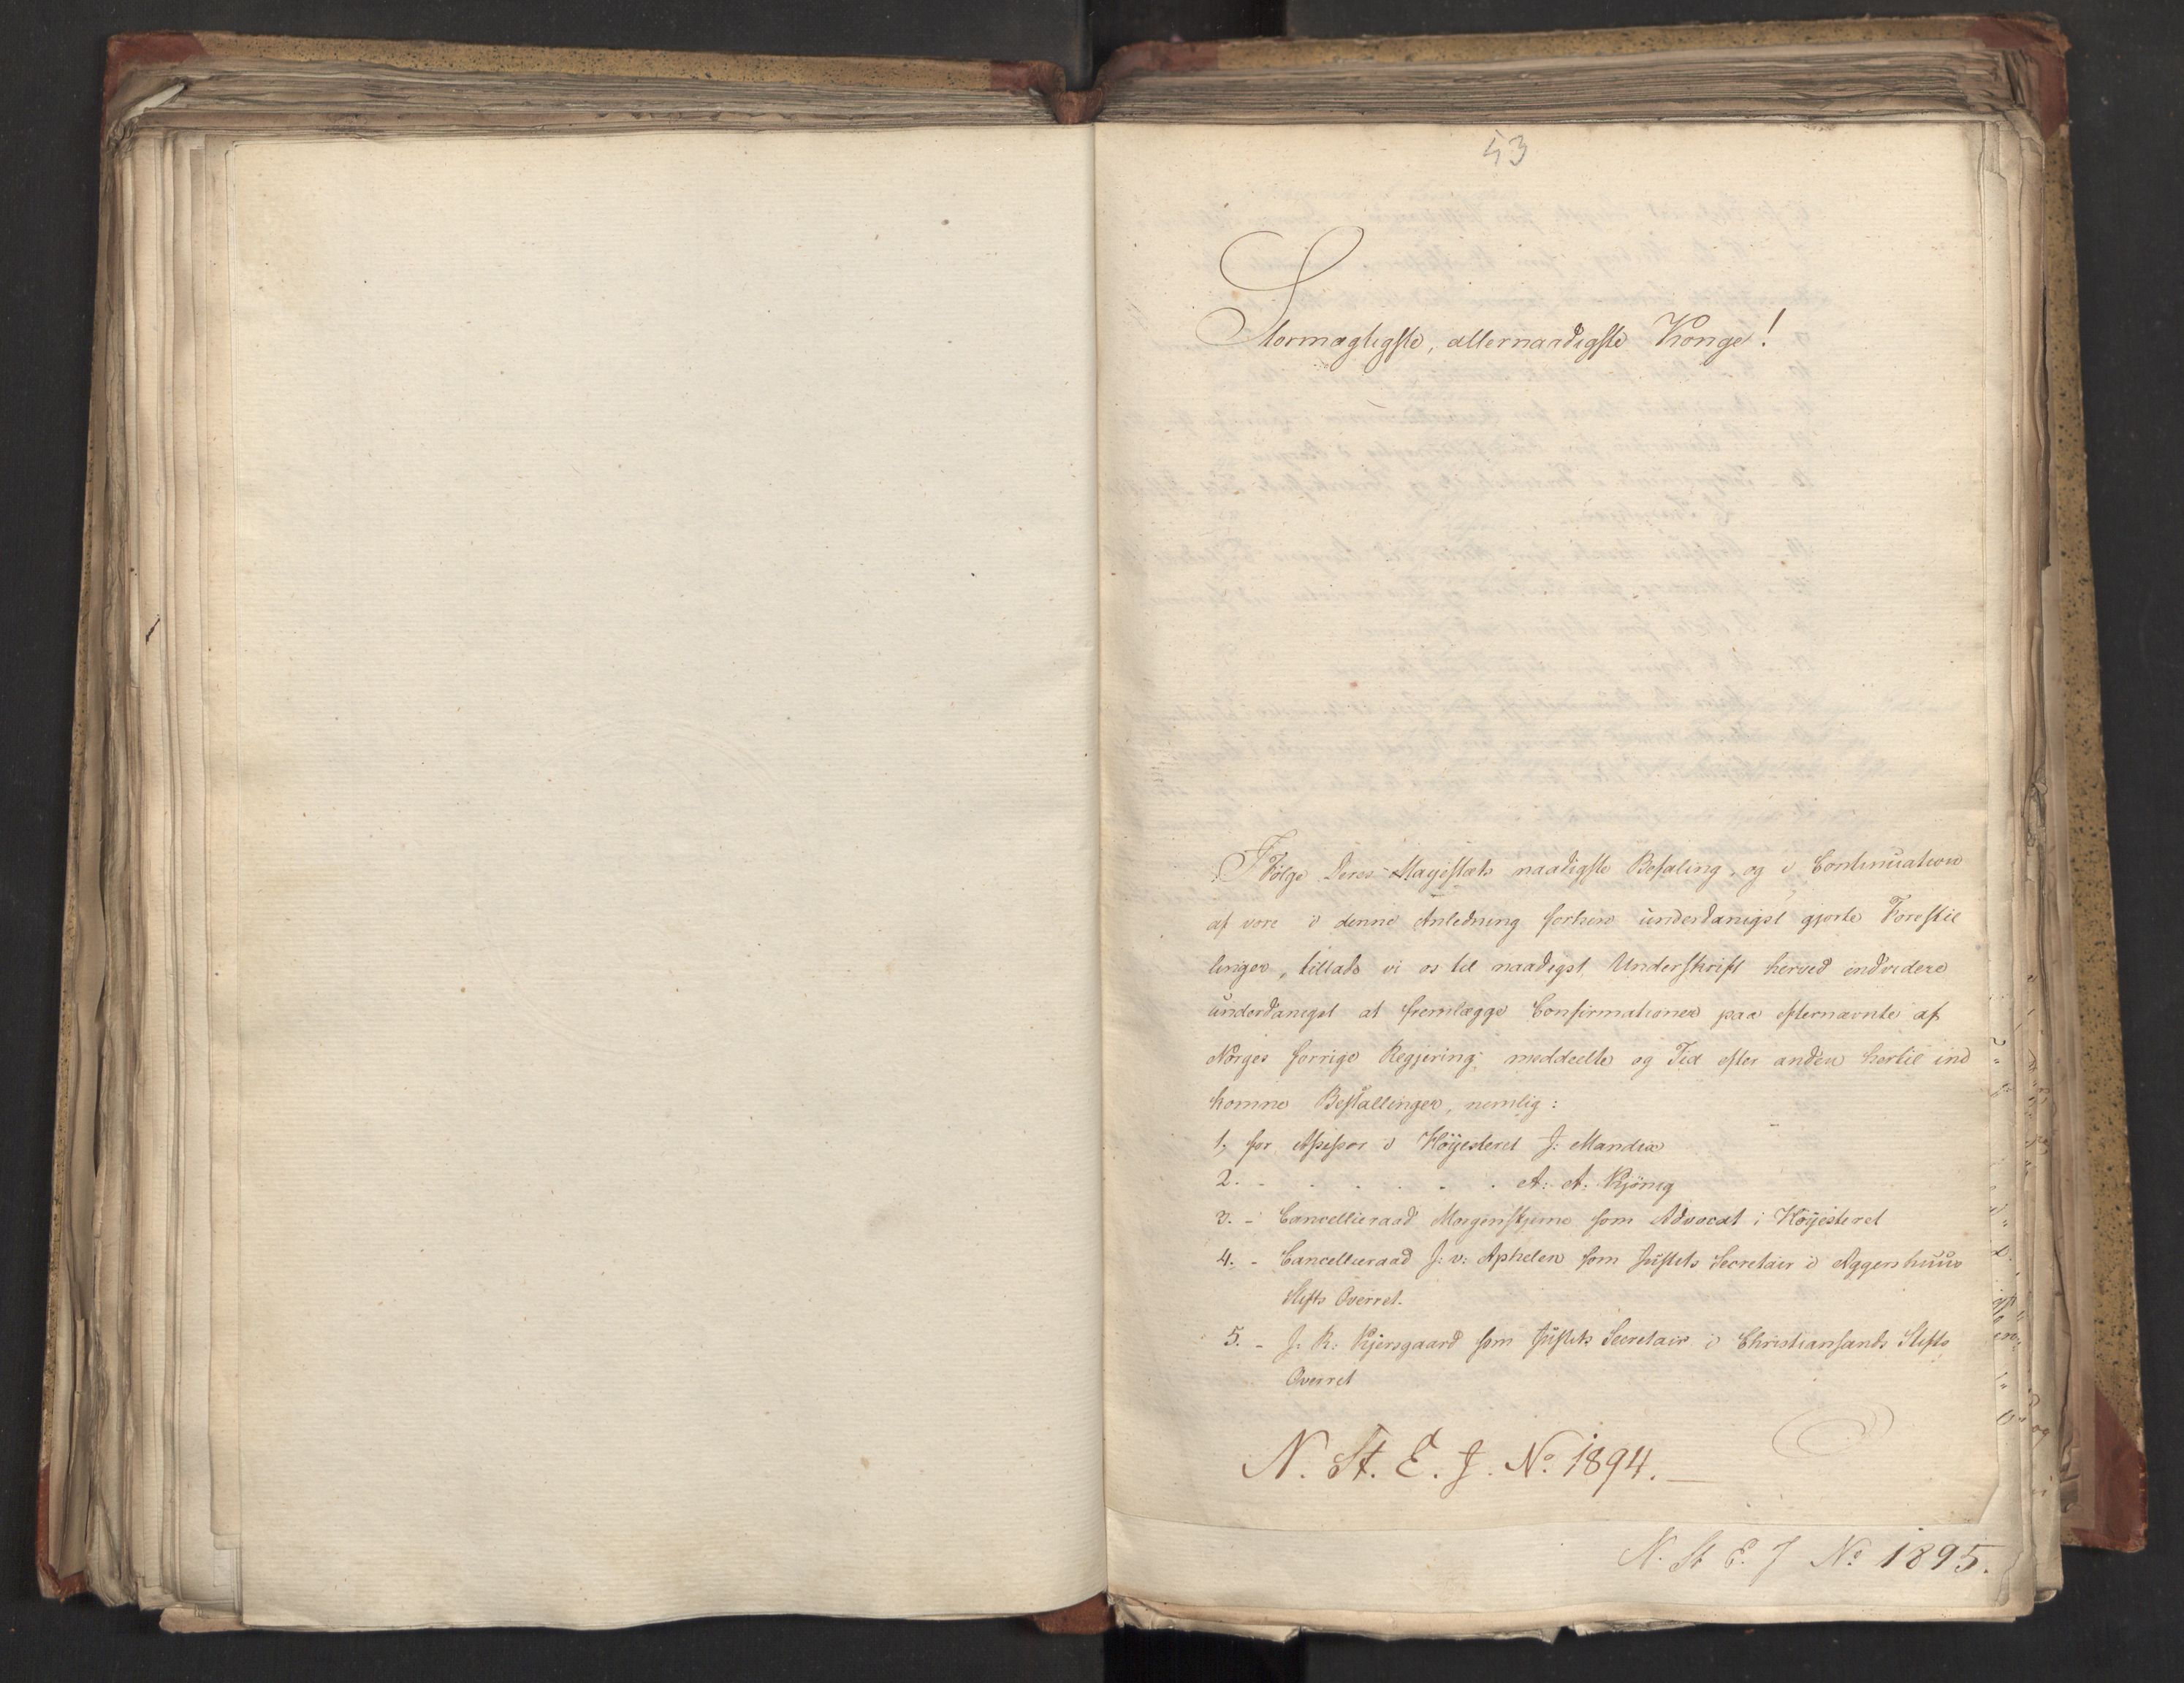 53
Stormægtigste, allernaadigste Konge!
I Følge Deres Majestæts naadigste Befaling, og i Continuation
af vore i denne Anledning forhen underdanigst gjorte Forestil
linger, tillade vi os til naadigst Underskrift herved endvidere
underdanigst at fremlægge Confirmationer paa efternævnte af
Norges forrige Regjering meddeelte og Tid efter anden hertil ind
komne Bestallinger, nemlig:
1, for Assessor i Høyesteret J: Mandix
2. - . . . . . A: A: Kjønig
3. - Cancellieraad Morgenstjerne som Advocat i Høyesteret
4. - Cancellieraad J: v: Aphelen som Justits Secretair i Aggershuus
Stifts Overret.
5. - J: K: Kjersgaard som Justits Secretair i Christiansands Stifts
Overret
N. St. E. J. No. 1894.
N. St E. J No 1895.